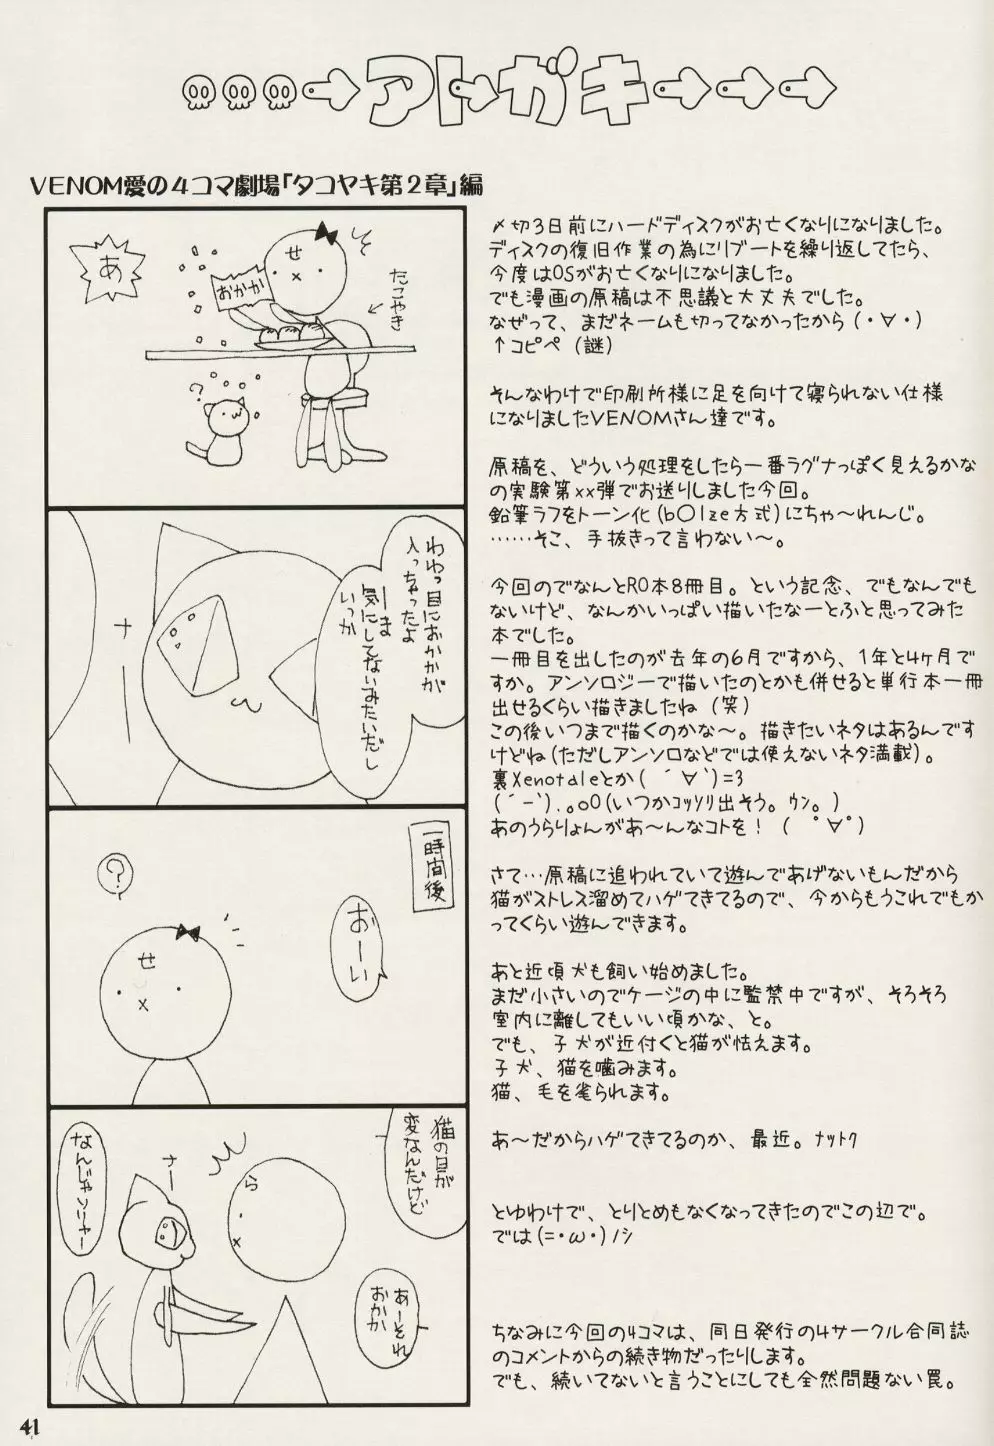 アトガキ
VENOM愛の4コマ劇場「タコヤキ第2章」編
あ
せ
おかか
たこやき
?
わわっ目におかかが
入っちゃったよ
ーま
気にしてないみたいだし
いっか
ナ
ー
一時間後
おーい
?
せ
猫の目が
変なんだけど
ら
ナー
なんじゃソリャー
あーそれ
おかか
〆切3日前にハードディスクがお亡くなりになりました。
ディスクの復旧作業の為にリブートを繰り返してたら、
今度はOSがお亡くなりになりました。
でも漫画の原稿は不思議と大丈夫でした。
なぜって、まだネームも切ってなかったから(・∀・)
↑コピペ(謎)
そんなわけで印刷所様に足を向けて寝られない仕様
になりましたVENOMさん達です。
原稿を、どういう処理をしたら一番ラグナっぽく見えるかな
の実験第xx弾でお送りしました今回。
鉛筆ラフをトーン化(b○lze方式)にちゃ〜れんじ。
……そこ、手抜きって言わない〜。
今回のでなんとRO本8冊目。という記念、でもなんでも
ないけど、なんかいっぱい描いたなーとふと思ってみた
本でした。
一冊目を出したのが去年の6月ですから、1年と4ヶ月で
すか。アンソロジーで描いたのとかも併せると単行本一冊
出せるくらい描きましたね(笑)
この後いつまで描くのかな〜。描きたいネタはあるんです
けどね(ただしアンソロなどでは使えないネタ満載)。
裏Xenotaleとか( ´∀`)=3
(´-`).。oO(いつかｺｯｿﾘ出そう。ｳﾝ。)
あのうらりょんがあ〜んなコトを! ( ﾟ∀ﾟ)
さて…原稿に追われていて遊んであげないもんだから
猫がストレス溜めてハゲてきてるので、今からもうこれでもか
ってくらい遊んできます。
あと近頃犬も飼い始めました。
まだ小さいのでケージの中に監禁中ですが、そろそろ
室内に離してもいい頃かな、と。
でも、子犬が近付くと猫が怯えます。
子犬、猫を噛みます。
猫、毛を毟られます。
あ〜だからハゲてきてるのか、最近。ﾅｯﾄｸ
とゆわけで、とりとめもなくなってきたのでこの辺で。
では(=・ω・)ノシ
ちなみに今回の4コマは、同日発行の4サークル合同誌
のコメントからの続き物だったりします。
でも、続いてないと言うことにしても全然問題ない罠。
41